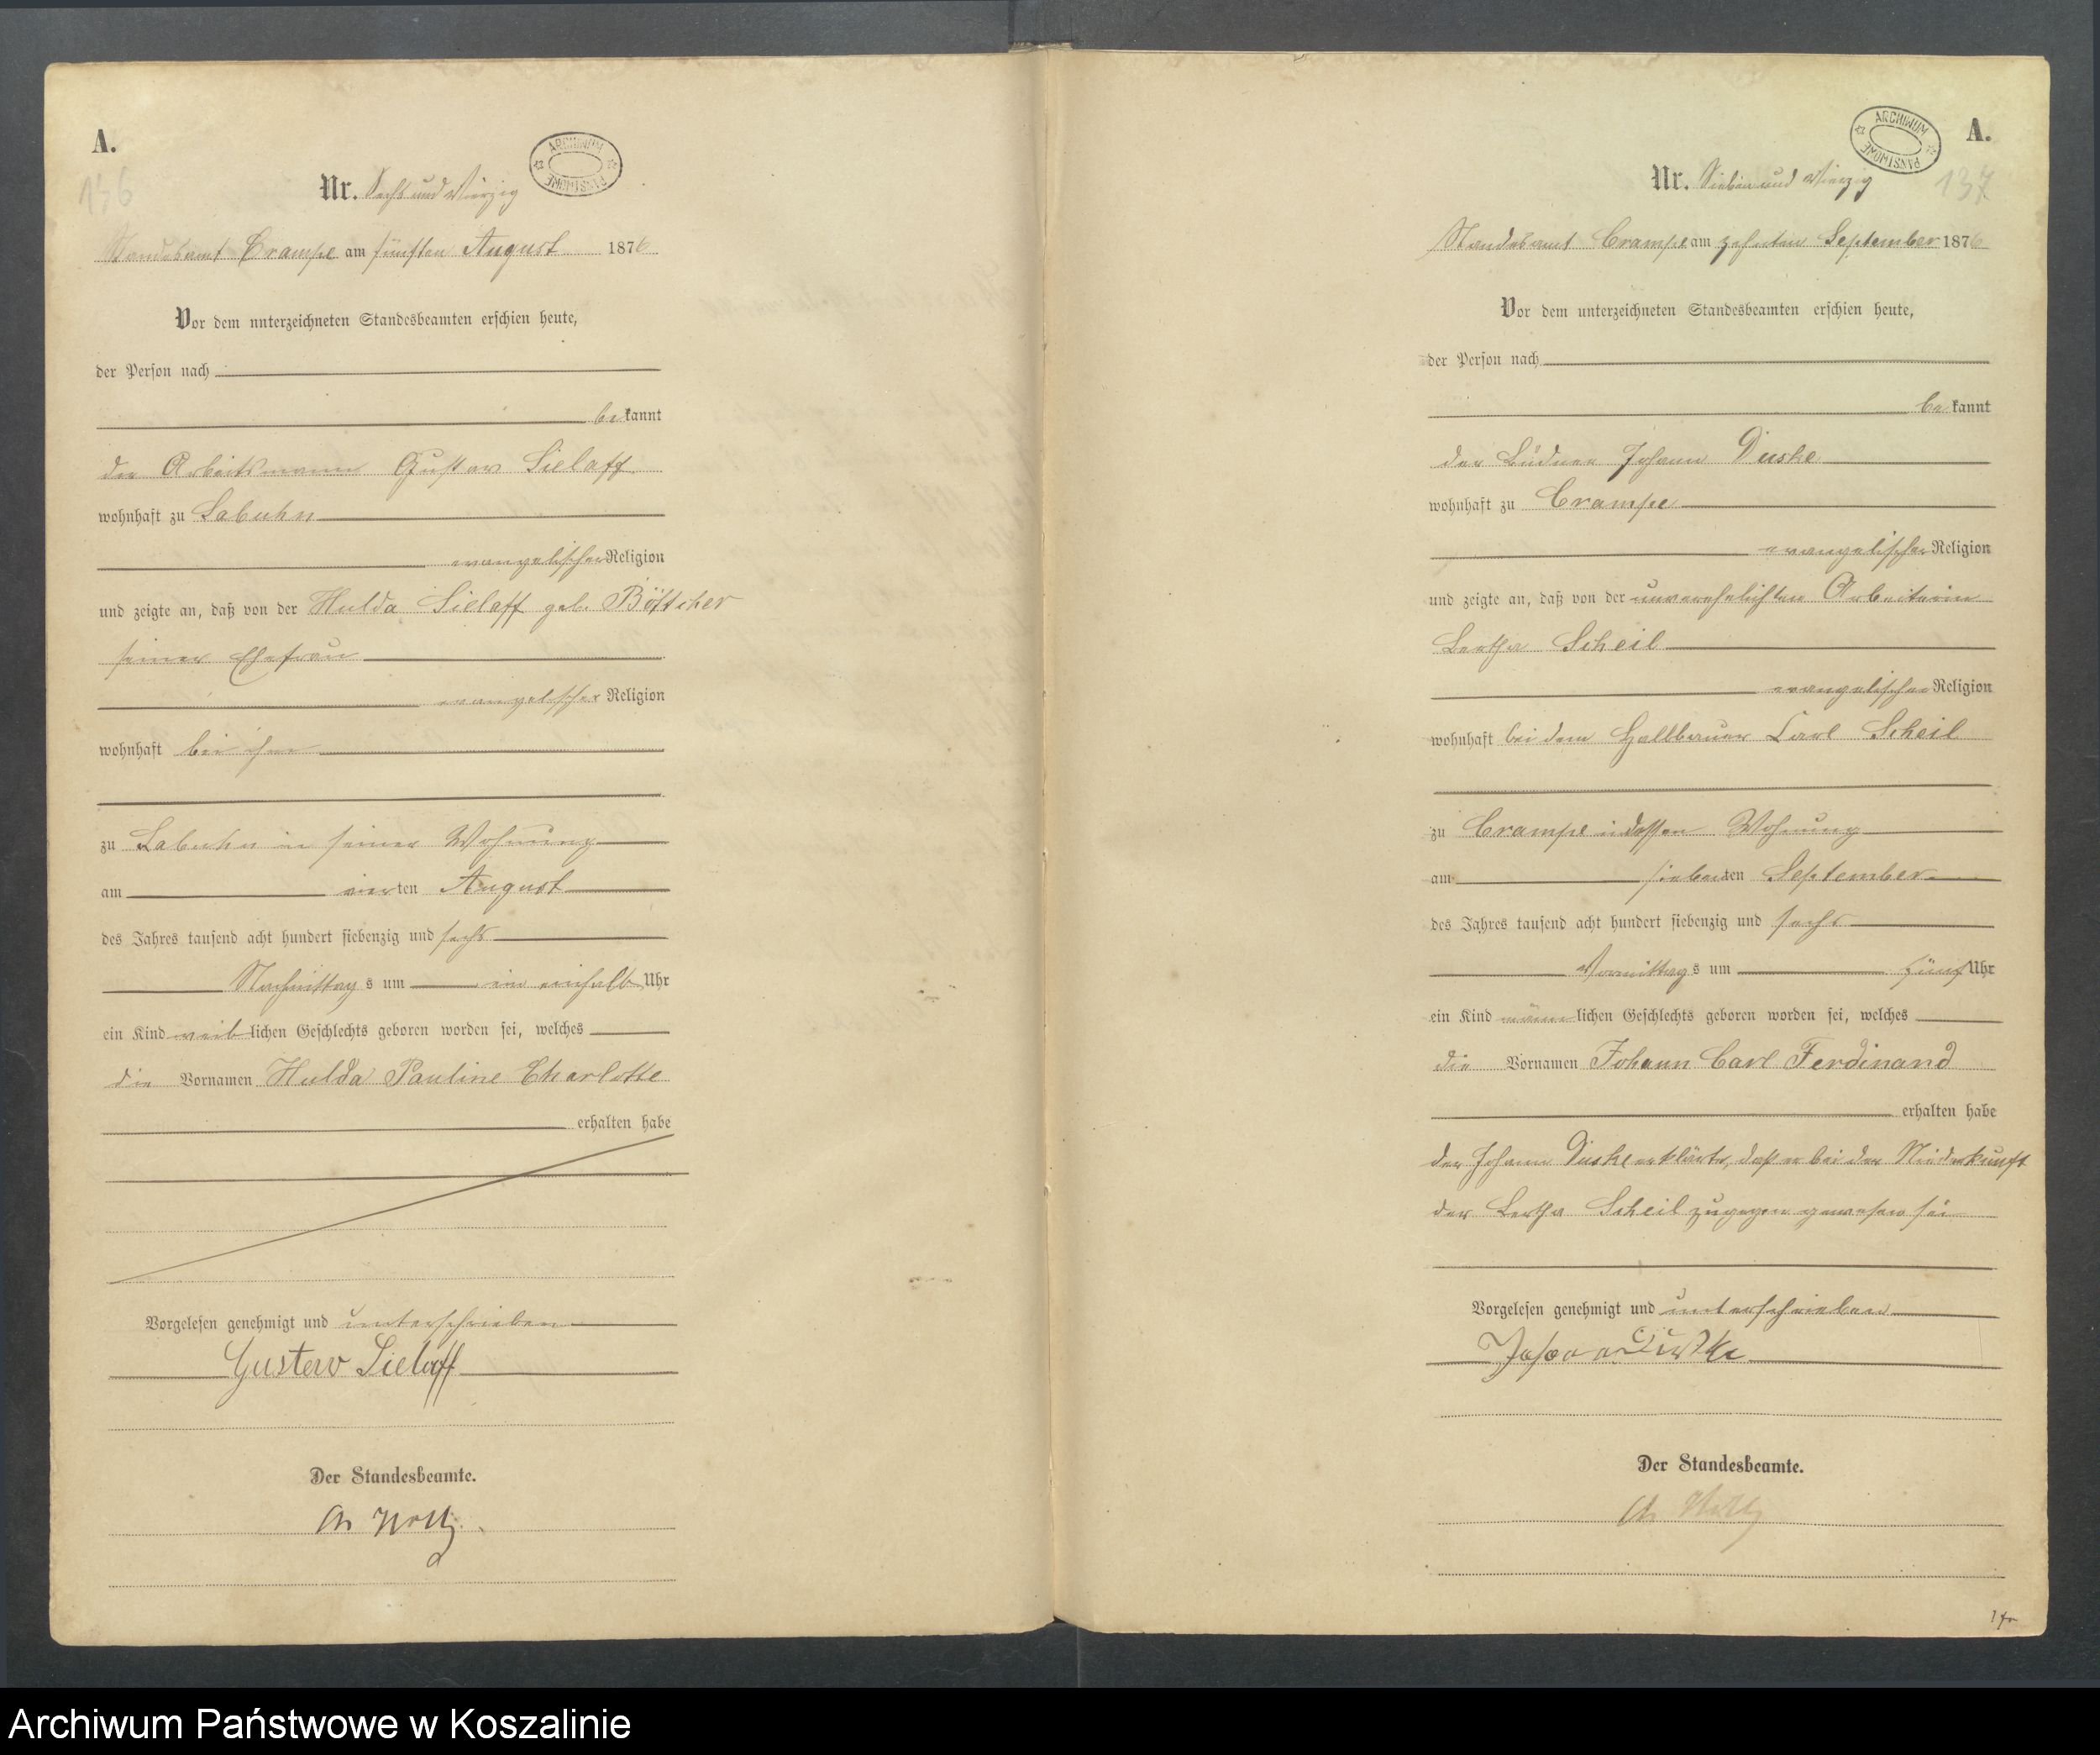 A.
ARCHIWUM PAŃSTWOWE
136
Nr. Sechs und Vierzig
Standesamt Crampe am fünften August 1876
Vor dem unterzeichneten Standesbeamten erschien heute,
der Person nach
bekannt
der Arbeitsmann Gustav Sielaff
wohnhaft zu Labuhn
evangelischer Religion
und zeigte an, daß von der Hulda Sielaff geb. Böttcher
seiner Ehefrau
evangelischer Religion
wohnhaft bei ihm
zu Labuhn in seiner Wohnung
am vierten August
des Jahres tausend acht hundert siebenzig und sechs
Nachmittags um Uhr
ein Kind weiblichen Geschlechts geboren worden sei, welches
die Vornamen Hulda Pauline Charlotte
erhalten habe
Vorgelesen genehmigt und unterschrieben
Gustav Sielaff
Der Standesbeamte.
A.
ARCHIWUM PAŃSTWOWE
137
Nr. Sieben und Vierzig
Standesamt Crampe am zehnten September 1876
Vor dem unterzeichneten Standesbeamten erschien heute,
der Person nach
bekannt
der Büdner Johann Duske
wohnhaft zu Crampe
evangelischer Religion
und zeigte an, daß von der unverehelichten Arbeiterin
Bertha Scheil
evangelischer Religion
wohnhaft bei dem Halbbauer Carl Scheil
zu Crampe in dessen Wohnung
am siebenten September
des Jahres tausend acht hundert siebenzig und sechs
Vormittags um fünf Uhr
ein Kind männlichen Geschlechts geboren worden sei, welches
die Vornamen Johann Carl Ferdinand
erhalten habe
der Johann Duske erklärte, daß er bei der Niederkunft
der Bertha Scheil zugegen gewesen sei
Vorgelesen genehmigt und unterschrieben
Johann Duske
Der Standesbeamte.
Archiwum Państwowe w Koszalinie